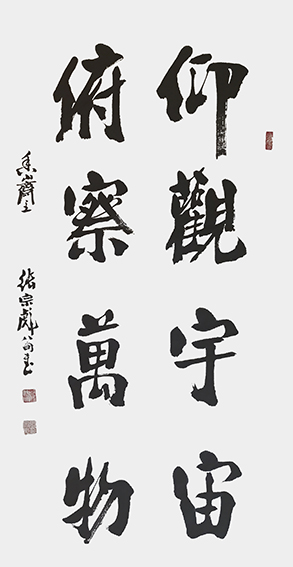 仰觀宇宙
俯察萬物